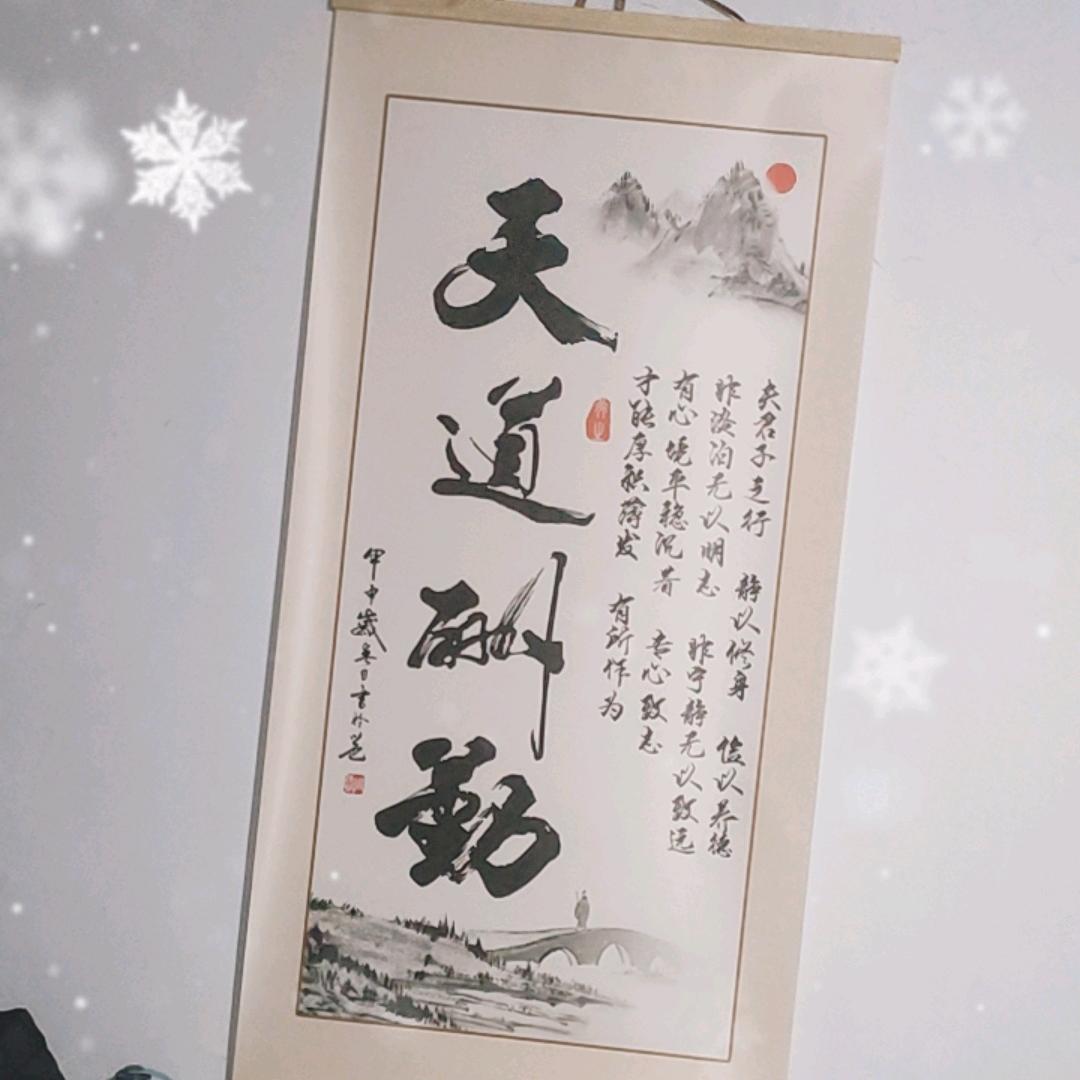 天道酬勤
夫君子之行 静以修身 俭以养德
非淡泊无以明志 非宁静无以致远
有心境平稳沉着 专心致志
才能厚积薄发 有所作为
甲申岁